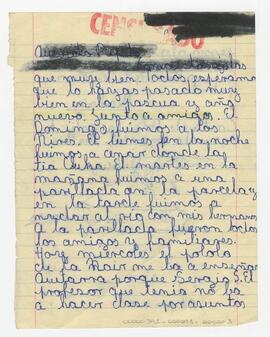 CENSURADO
que muy bien. todos esperamos
que lo hayas pasado muy
bien en la pascua y año
nuevo. Junto a amigos. El
Domingo fuimos a los
Aires. El lunes en la noche
fuimos a comer donde la
tía Luisa. El martes en la
mañana fuimos a una
parillada en la parcela y
en la tarde fuimos a
al río con mis hermanos
A la parillada fueron todos
los amigos y familiares.
Hoy miercoles el pololo
de la Nair me va a enseñar
Guitarra porque Sergio S. El
profesor que tenia no va
a hacer clase por asuntos